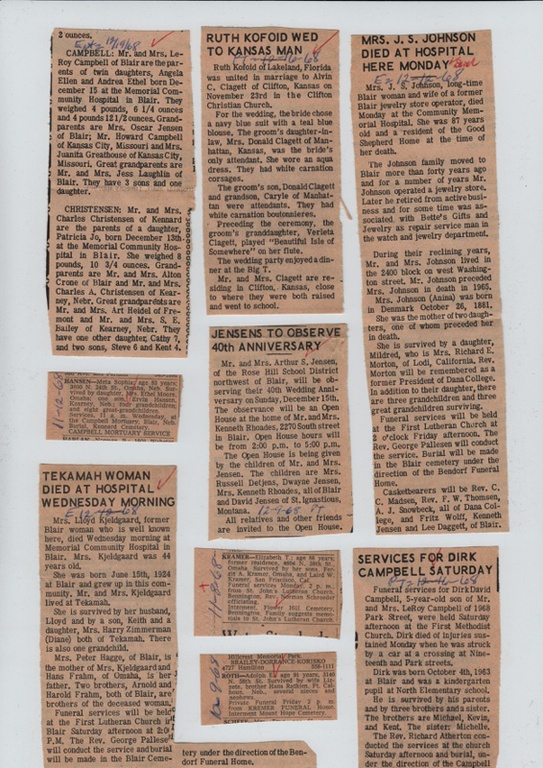 2 ounces.
12/19/68
CAMPBELL: Mr. and Mrs. Le-
Roy Campbell of Blair are the par-
ents of twin daughters, Angela
Ellen and Andrea Ethel born De-
cember 15 at the Memorial Com-
munity Hospital in Blair. They
weighed 4 pounds, 6 1/4 ounces
and 4 pounds 12 1/2 ounces. Grand-
parents are Mrs. Oscar Jensen
of Blair; Mr. Howard Campbell
of Kansas City, Missouri and Mrs.
Juanita Greathouse of Kansas City,
Missouri. Great grandparents are
Mr. and Mrs. Jess Laughlin of
Blair. They have 3 sons and one
daughter.
CHRISTENSEN: Mr. and Mrs.
Charles Christensen of Kennard
are the parents of a daughter,
Patricia Jo, born December 13th
at the Memorial Community Hos-
pital in Blair. She weighed 8
pounds, 10 3/4 ounces. Grand-
parents are Mr. and Mrs. Alton
Crone of Blair and Mr. and Mrs.
Charles A. Christensen of Kear-
ney, Nebr. Great grandparents are
Mr. and Mrs. Art Heidel of Fre-
mont and Mr. and Mrs. S. E.
Bailey of Kearney, Nebr. They
have one other daughter, Cathy 7,
and two sons, Steve 6 and Kent 4.
11-12-68
HANSEN—Meta Sophia, age 83 years;
CAMPBELL MORTUARY SERVICE
TEKAMAH WOMAN
DIED AT HOSPITAL
WEDNESDAY MORNING
Mrs. Lloyd Kjeldgaard, former
Blair woman who is well known
here, died Wednesday morning at
Memorial Community Hospital in
Blair. Mrs. Kjeldgaard was 44
years old.
She was born June 15th, 1924
at Blair and grew up in this commu-
nity. Mr. and Mrs. Kjeldgaard
lived at Tekamah.
She is survived by her husband,
Lloyd and by a son, Keith and a
daughter, Mrs. Harry Zimmerman
(Diane) both of Tekamah. There
is also one grandchild.
Mrs. Peter Hagge, of Blair, is
the mother of Mrs. Kjeldgaard and
Hans Frahm, of Omaha, is her
father. Two brothers, Arnold and
Harold Frahm, both of Blair, are
brothers of the deceased woman.
Funeral services will be held
at the First Lutheran Church in
Blair Saturday afternoon at 2:0
P.M. The Rev. George Pallesen
will conduct the service and burial
will be made in the Blair Ceme-
tery under the direction of the Ben-
dorf Funeral Home.
RUTH KOFOID WED
TO KANSAS MAN
Ruth Kofoid of Lakeland, Florida
was united in marriage to Alvin
C. Clagett of Clifton, Kansas on
November 23rd in the Clifton
Christian Church.
For the wedding, the bride chose
a navy blue suit with a teal blue
blouse. The groom's daughter-in-
law, Mrs. Donald Clagett of Man-
hattan, Kansas, was the bride's
only attendant. She wore an aqua
dress. They had white carnation
corsages.
The groom's son, Donald Clagett
and grandson, Caryle of Manhat-
tan were attendants. They had
white carnation boutonnieres.
Preceding the ceremony, the
groom's granddaughter, Verleta
Clagett, played "Beautiful Isle of
Somewhere" on her flute.
The wedding party enjoyed a din-
ner at the Big T.
Mr. and Mrs. Clagett are re-
siding in Clifton, Kansas, close
to where they were both raised
and went to school.
JENSENS TO OBSERVE
40th ANNIVERSARY
Mr. and Mrs. Arthur S. Jensen,
of the Rose Hill School District
northwest of Blair, will be ob-
serving their 40th Wedding Anni-
versary on Sunday, December 15th.
The observance will be an Open
House at the home of Mr. and Mrs.
Kenneth Rhoades, 2270 South street
in Blair. Open House hours will
be from 2:00 p.m. to 5:00 p.m.
The Open House is being given
by the children of Mr. and Mrs.
Jensen. The children are Mrs.
Russell Detjens, Dwayne Jensen,
Mrs. Kenneth Rhoades, all of Blair
and David Jensen of St. Ignatious,
Montana.
All relatives and other friends
are invited to the Open House.
11-8-68
KRAMER—Elizabeth T.; age 86 years,
Hillcrest Memorial Park.
BRAILEY-DORRANCE-KORISKO
4727 Hamilton
ROTH—Adolph
MRS. J. S. JOHNSON
DIED AT HOSPITAL
HERE MONDAY
Mrs. J. S. Johnson, long-time
Blair woman and wife of a former
Blair jewelry store operator, died
Monday at the Community Mem-
orial Hospital. She was 87 years
old and a resident of the Good
Shepherd Home at the time of
her death.
The Johnson family moved to
Blair more than forty years ago
and for a number of years Mr.
Johnson operated a jewelry store.
Later he retired from active busi-
ness and for some time was as-
sociated with Bette's Gifts and
Jewelry as repair service man in
the watch and jewelry department.
During their reclining years,
Mr. and Mrs. Johnson lived in
the 2400 block on west Washing-
ton street. Mr. Johnson preceded
Mrs. Johnson in death in 1965.
Mrs. Johnson (Anina) was born
in Denmark October 26, 1881.
She was the mother of two daugh-
ters, one of whom preceded her
in death.
She is survived by a daughter,
Mildred, who is Mrs. Richard E.
Morton, of Lodi, California. Rev.
Morton will be remembered as a
former President of Dana College.
In addition to their daughter, there
are three grandchildren and three
great grandchildren surviving.
Funeral services will be held
at the First Lutheran Church at
2 o'clock Friday afternoon. The
Rev. George Pallesen will conduct
the service. Burial will be made
in the Blair cemetery under the
direction of the Bendorf Funeral
Home.
Casketbearers will be Rev. C.
C. Madsen, Rev. F. W. Thomsen,
A. J. Snowbeck, all of Dana Col-
lege, and Fritz Wolff, Kenneth
Jensen and Lee Daggett, of Blair.
SERVICES FOR DIRK
CAMPBELL SATURDAY
Funeral services for Dirk David
Campbell, 5-year-old son of Mr.
and Mrs. LeRoy Campbell of 1968
Park Street, were held Saturday
afternoon at the First Methodist
Church. Dirk died of injuries sus-
tained Monday when he was struck
by a car at a crossing at Nine-
teenth and Park streets.
Dirk was born October 4th, 1963
at Blair and was a kindergarten
pupil at North Elementary school.
He is survived by his parents
and by three brothers and a sister.
The brothers are Michael, Kevin,
and Kent. The sister: Michelle.
The Rev. Richard Atherton con-
ducted the services at the church
Saturday afternoon and burial, un-
der the direction of the Campbell